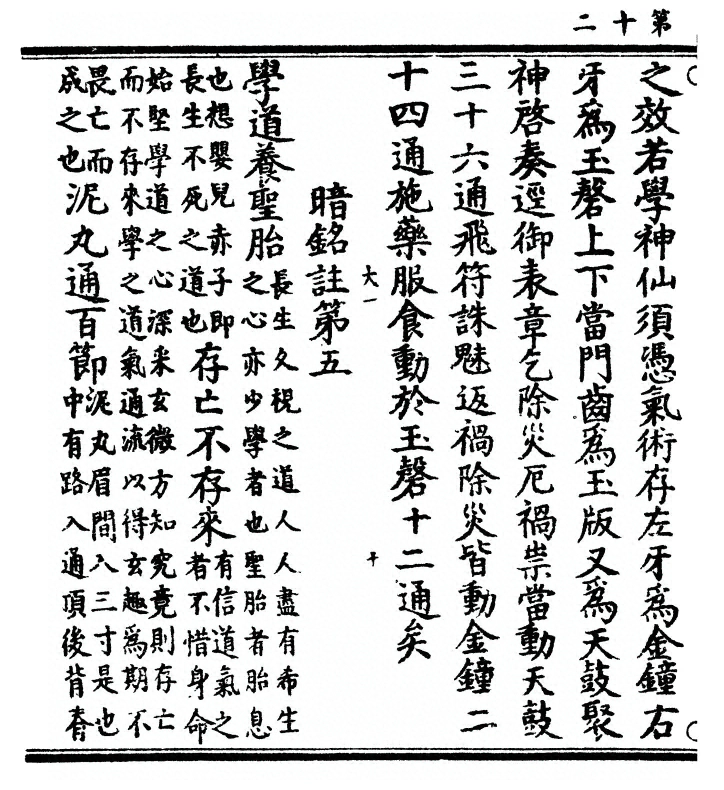 第十二
之效若學神仙須憑氣術存左牙爲金鐘右
牙爲玉磬上下當門齒爲玉版又爲天鼓聚
神啓奏逕御表章乞除災厄禍祟當動天鼓
三十六通飛符誅魅返禍除災皆動金鐘二
十四通施藥服食動於玉磬十二通矣
大一 十
暗銘註第五
學道養聖胎長生久視之道人人盡有希生之心亦少學者也聖胎者胎息
也想嬰兒赤子即長生不死之道也存亡不存來有信道氣之者不惜身命
始堅學道之心深采玄微方知究竟則存亡而不存來學之道氣通流以得玄趣爲期不
畏亡而成之也泥丸通百節泥丸眉間入三寸是也中有路入通頂後背脊